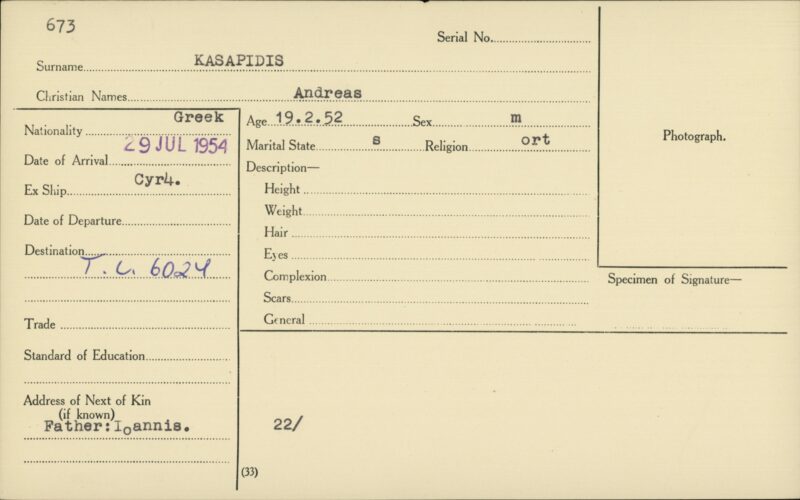 673
Serial No.
Surname KASAPIDIS
Christian Names Andreas
Nationality Greek
Date of Arrival 29 JUL 1954
Ex Ship Cyr4.
Date of Departure
Destination
T. L. 6024
Trade
Standard of Education
Address of Next of Kin
(if known)
Father:Ioannis.
Age 19.2.52 Sex m
Marital State s Religion ort
Description—
Height
Weight
Hair
Eyes
Complexion
Scars
General
22/
(33)
Photograph.
Specimen of Signature—